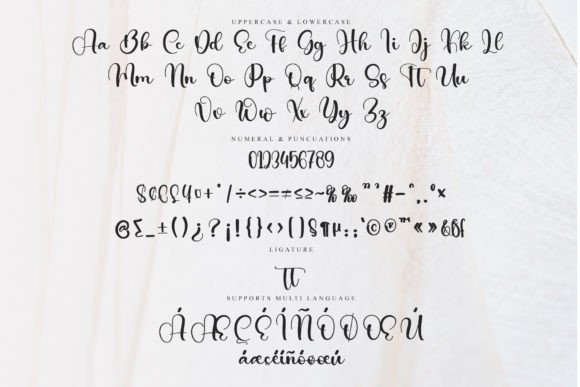 UPPERCASE & LOWERCASE
Aa Bb Cc Dd Ee Ff Gg Hh Ii Jj Kk Ll
Mm Nn Oo Pp Qq Rr Ss Tt Uu
Vv Ww Xx Yy Zz
NUMERAL & PUNCUATIONS
0123456789
+ * / ÷ < > = ≠ ≤ ≥ ~ % ‰ # -
@ Σ _ ± ( ) ¿ ? ¡ ! { } ‹ › [ ] § ¶ µ : ; © ® ™ « »
LIGATURE
tt
SUPPORTS MULTI LANGUAGE
ÁÆÇÉÍÑÓØŒÚ
áæçéíñóøœú